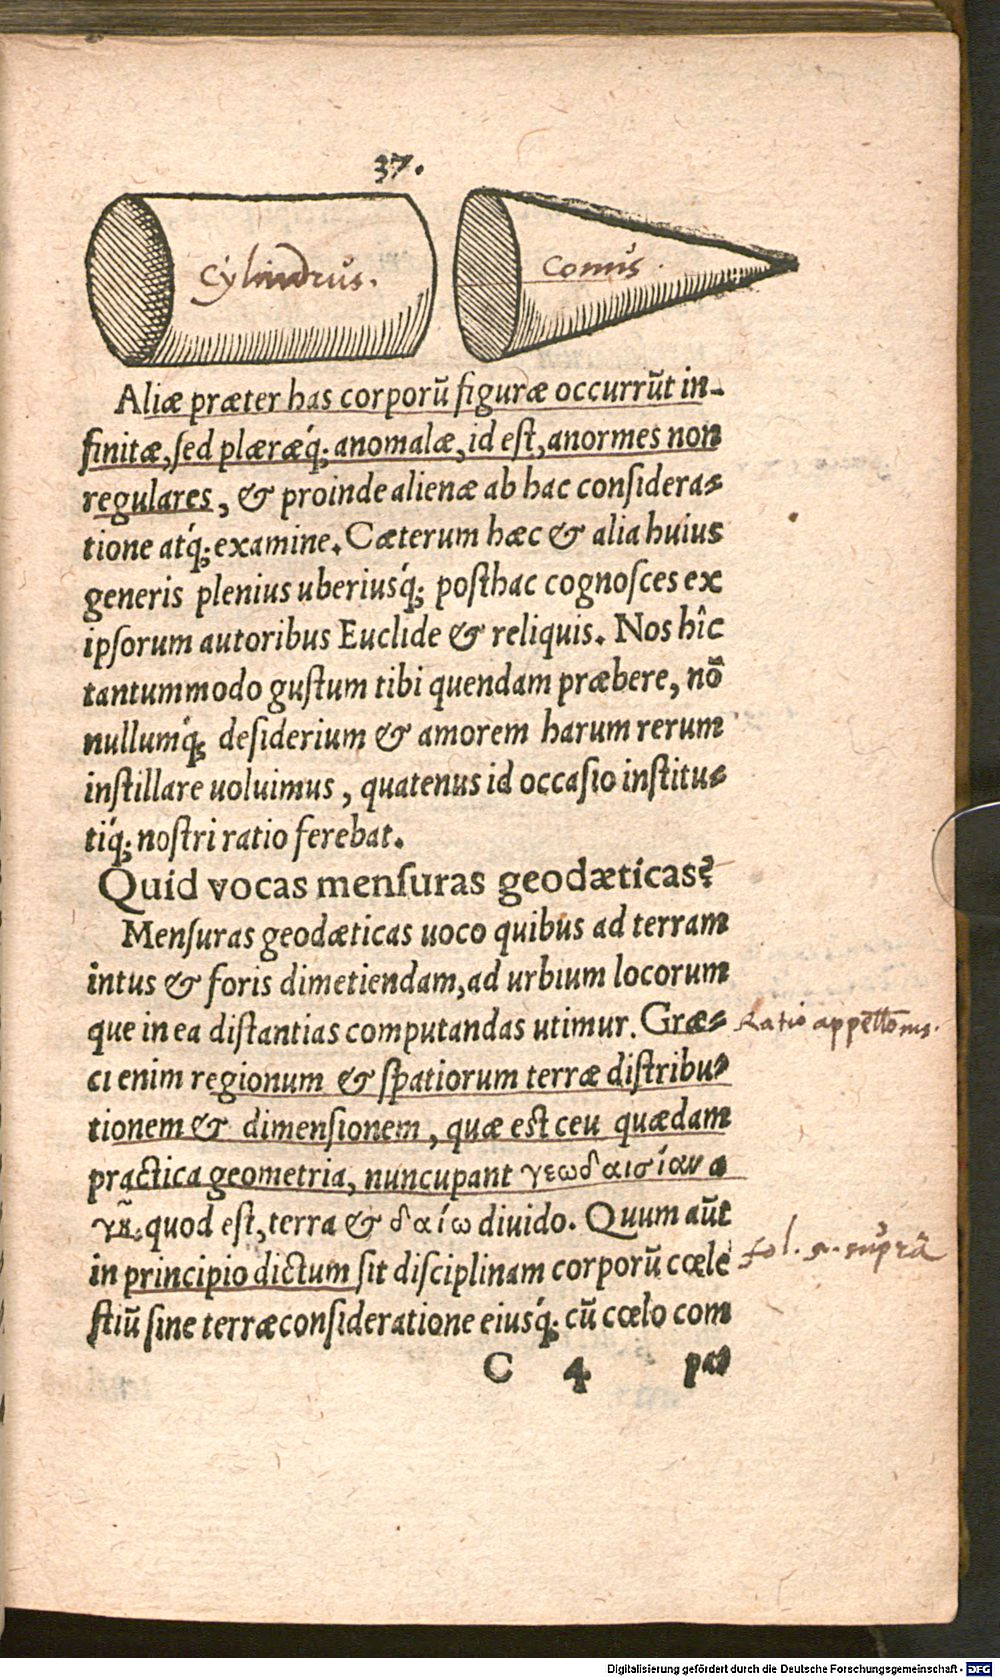 37.
Cylindrus.
Conus.
Aliæ præter has corporū figuræ occurrūt in-
finitæ, ſed plæræq́; anomalæ, id eſt, anormes non
regulares, & proinde alienæ ab hac conſidera-
tione atq́; examine. Cæterum hæc & alia huius
generis plenius uberiusq́; poſthac cognoſces ex
ipſorum autoribus Euclide & reliquis. Nos hîc
tantummodo guſtum tibi quendam præbere, nō
nullumq́; deſiderium & amorem harum rerum
inſtillare uoluimus, quatenus id occaſio inſtitu-
tiq́; noſtri ratio ferebat.
Quid vocas menſuras geodæticas?
Menſuras geodæticas uoco quibus ad terram
intus & foris dimetiendam, ad urbium locorum
que in ea diſtantias computandas utimur. Græ-
Ratio appellōnis.
ci enim regionum & ſpatiorum terræ diſtribu-
tionem & dimenſionem, quæ eſt ceu quædam
practica geometria, nuncupant γεωδαισίαν a
γῆ. quod eſt, terra & δαίω diuido. Quum aūt
in principio dictum ſit diſciplinam corporū cœle
fol. 2. suprà
ſtiū ſine terræ conſideratione eiusq́; cū cœlo com
C 4 pa-
Digitalisierung gefördert durch die Deutsche Forschungsgemeinschaft - DFG